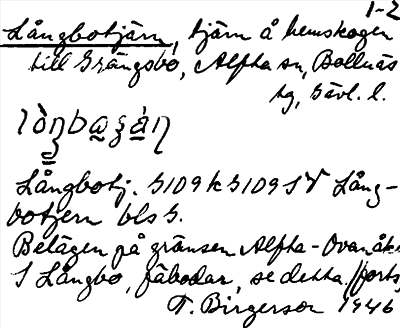 1-2
Långbotjärn, tjärn å hemskogen
till Grängsbo, Alfta sn, Bollnäs
tg, Gävl. l.
Långbotj. 5109 k 5109 SV Lång-
botjern bls 5.
Belägen på gränsen Alfta-Ovanåker
S Långbo, fäbodar, se detta. //forts,
T. Birgerson 1946